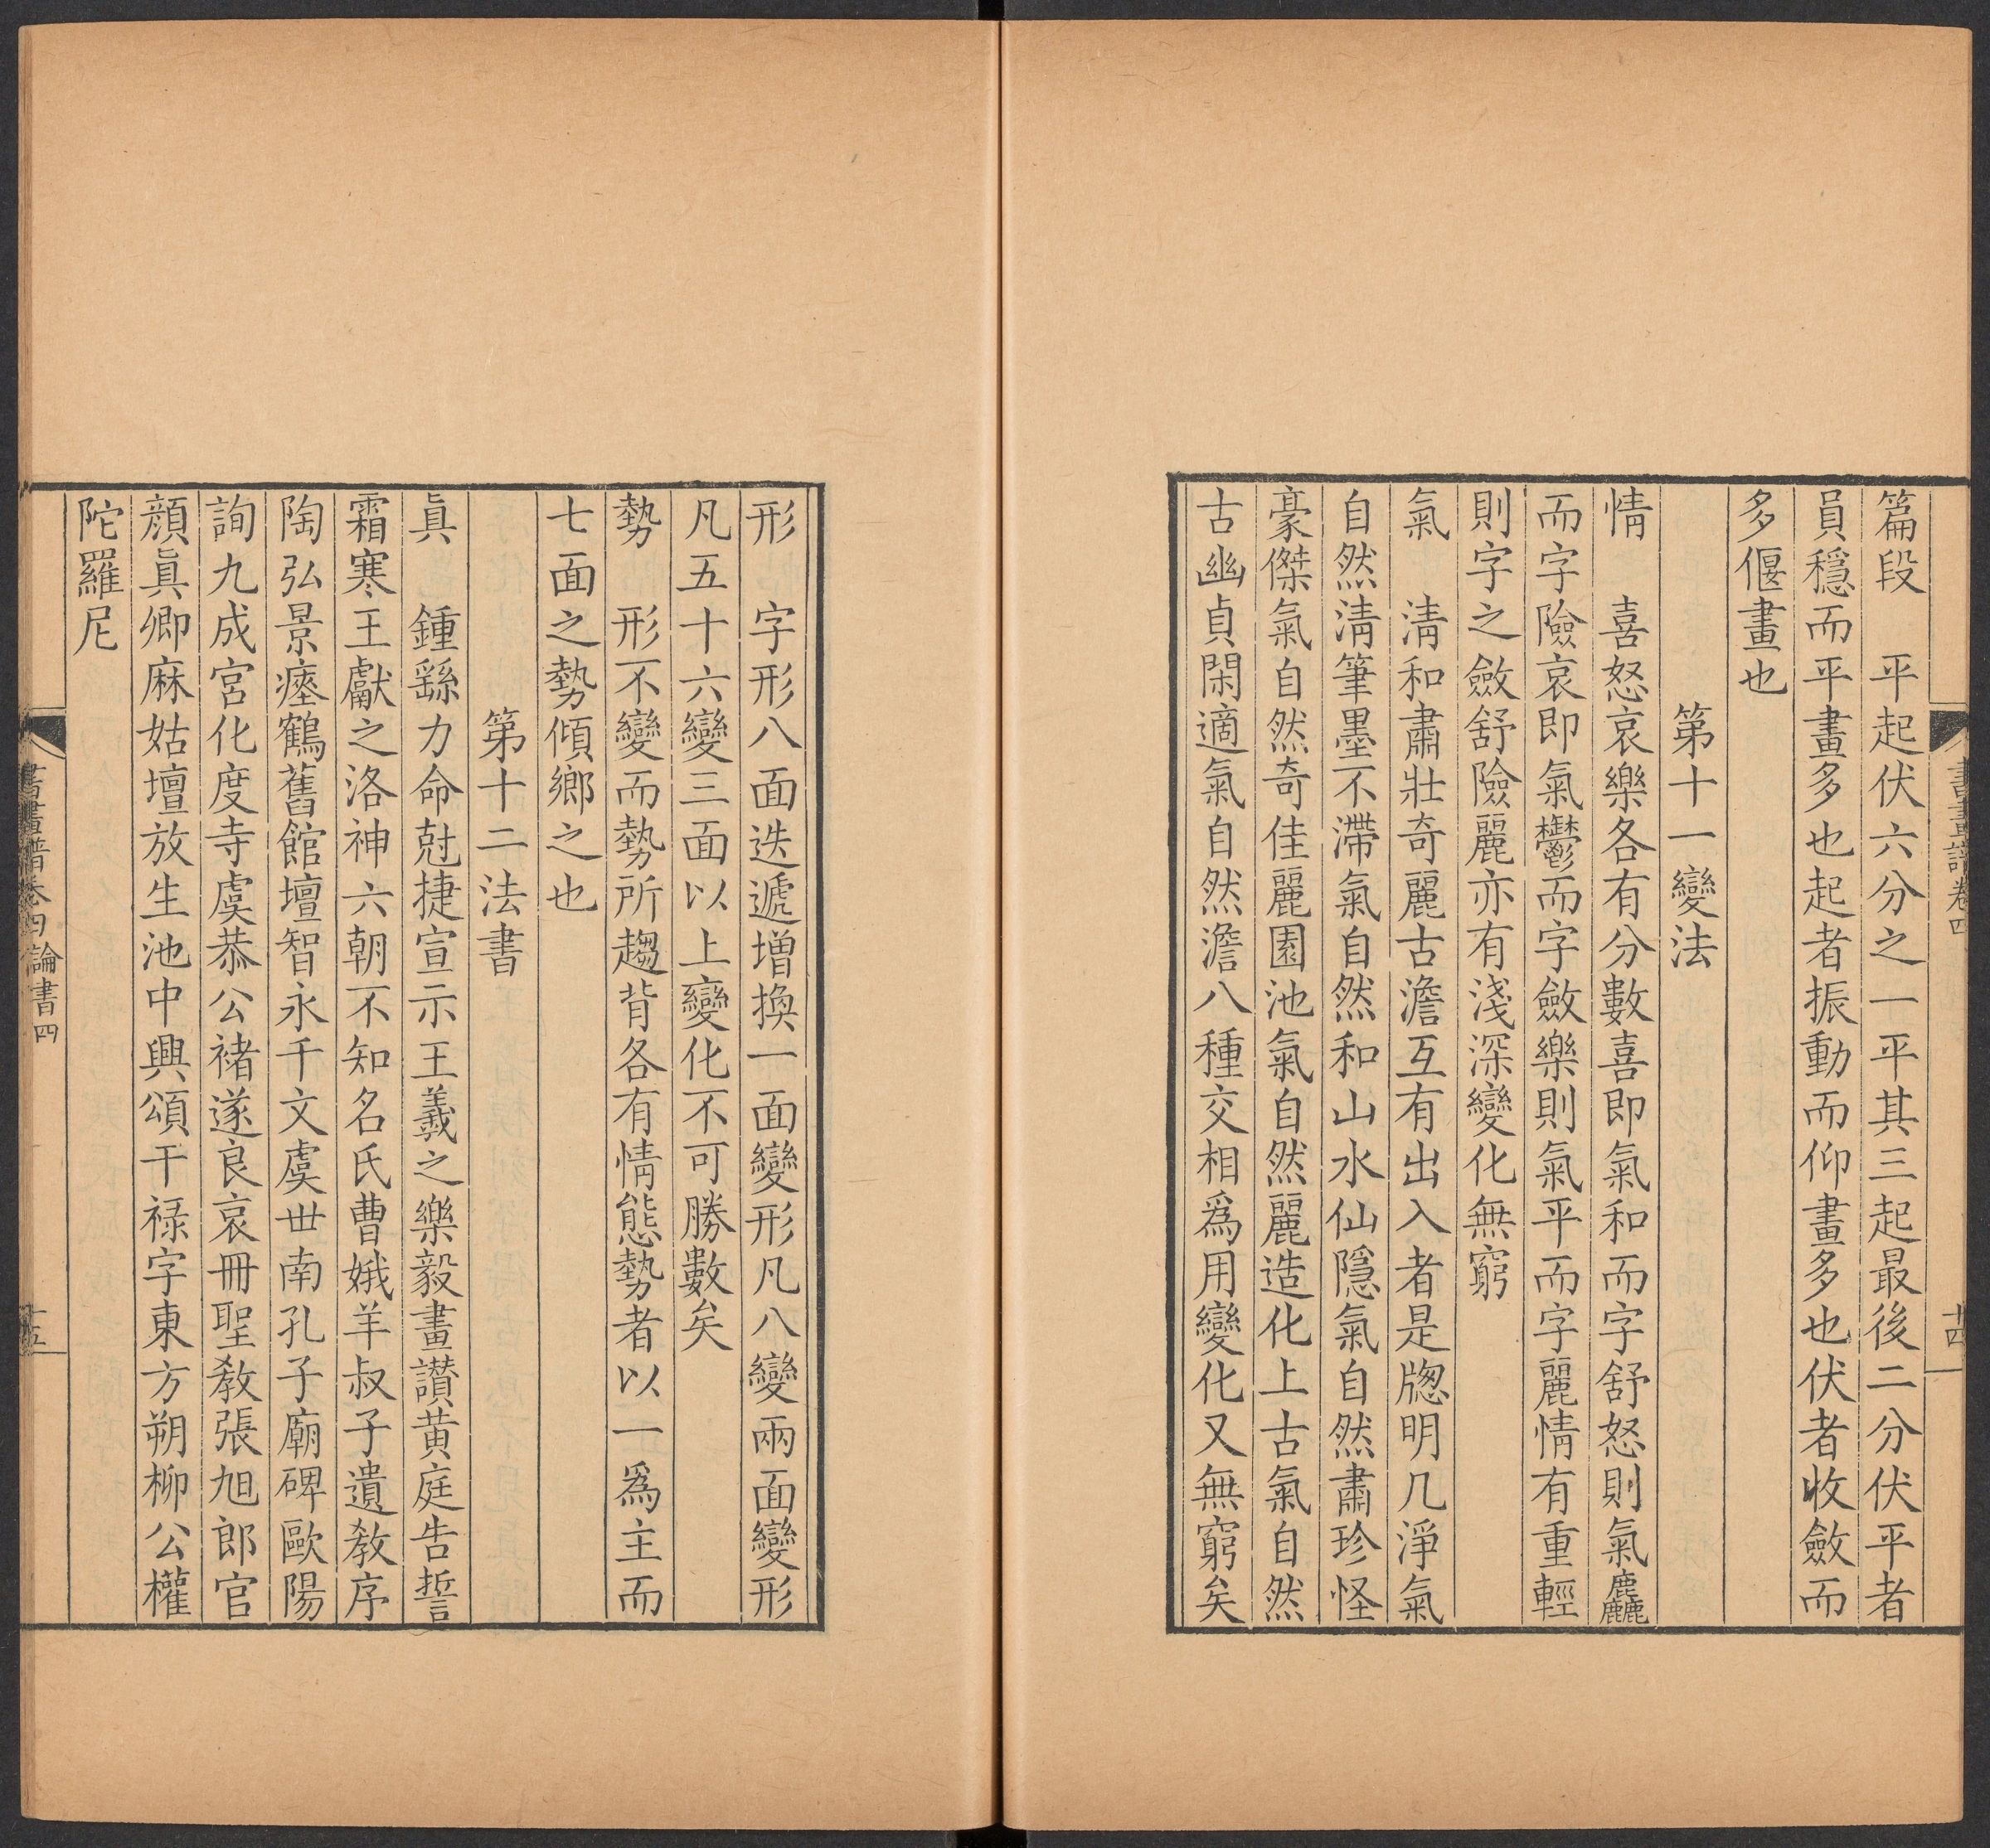 書畫譜卷四
十四
篇段　平起伏六分之一平其三起最後二分伏平者
員穩而平畫多也起者振動而仰畫多也伏者收斂而
多偃畫也
第十一變法
情　喜怒哀樂各有分數喜即氣和而字舒怒則氣麤
而字險哀即氣鬱而字斂樂則氣平而字麗情有重輕
則字之斂舒險麗亦有淺深變化無窮
氣　淸和肅壯奇麗古澹互有出入者是牕明几淨氣
自然淸筆墨不滯氣自然和山水仙隱氣自然肅珍怪
豪傑氣自然奇佳麗園池氣自然麗造化上古氣自然
古幽貞閑適氣自然澹八種交相爲用變化又無窮矣
形　字形八面迭遞增換一面變形凡八變兩面變形
凡五十六變三面以上變化不可勝數矣
勢　形不變而勢所趨背各有情態勢者以一爲主而
七面之勢傾鄉之也
第十二法書
眞　鍾繇力命尅捷宣示王羲之樂毅畫讃黄庭告誓
霜寒王獻之洛神六朝不知名氏曹娥羊叔子遺敎序
陶弘景瘞鶴舊館壇智永千文虞世南孔子廟碑歐陽
詢九成宮化度寺虞恭公褚遂良哀冊聖敎張旭郎官
顔眞卿麻姑壇放生池中興頌干祿字東方朔柳公權
陀羅尼
書畫譜卷四　論書四
十五